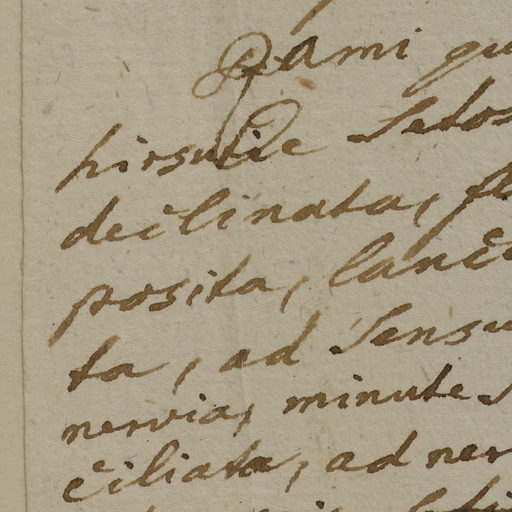 Rami qu
hirsutie Setos
declinata, f
posita, lanc
ta, ad Sensu
nervia, minute S
ciliata, ad ner